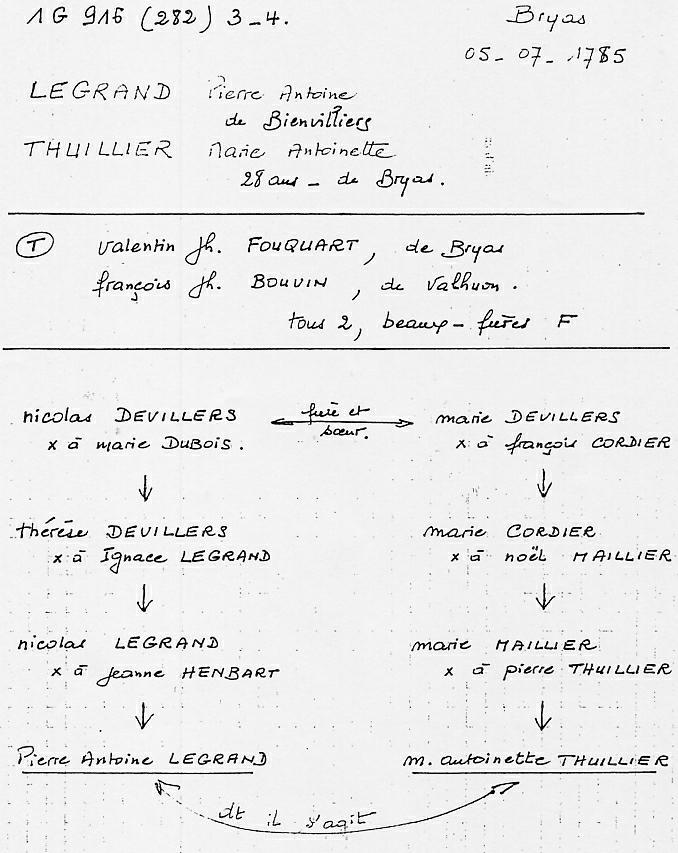 1G 916 (282) 3-4.
Bryas
05-07-1785
LEGRAND Pierre Antoine
de Bienvilliers
THUILLIER Marie Antoinette
28 ans - de Bryas.
T valentin Jh. FOUQUART, de Bryas
françois Jh. BOUVIN, de Valhuon.
tous 2, beaux-frères F
nicolas DEVILLERS frère et sœur. marie DEVILLERS
x à marie DUBOIS. x à françois CORDIER
thérèse DEVILLERS marie CORDIER
x à Ignace LEGRAND x à noël MAILLIER
nicolas LEGRAND marie MAILLIER
x à Jeanne HENBART x à pierre THUILLIER
Pierre Antoine LEGRAND m. antoinette THUILLIER
dt il s'agit